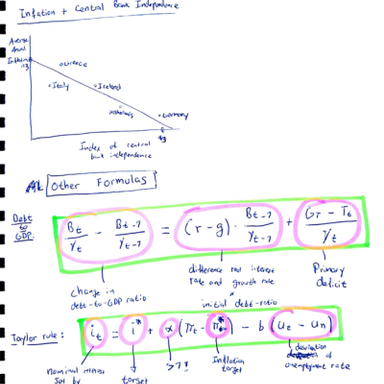 Inflation + Central Bank Independence
Average
Annual
Inflation
Greece
Italy
Ireland
Germany
Index of central
bank independence
Other Formulas
Debt
to
GDP:
Bt/Yt - Bt-1/Yt-1 = (r-g) · Bt-1/Yt-1 + Gt - Tt/Yt
change in
debt-to-GDP ratio
difference real interest
rate and growth rate
initial debt-ratio
Primary
deficit
Taylor rule: it = i* + α (πt - π*) - b (ut - un)
nominal interest
set by
target
Inflation
target
deviation of
unemployment rate